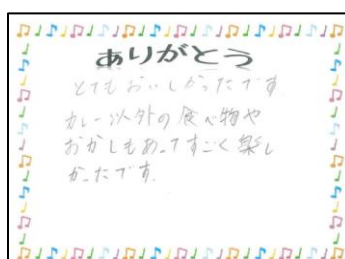 ありがとう
とてもおいしかったです
カレー以外の食べ物や
おかしもあってすごく楽し
かったです.